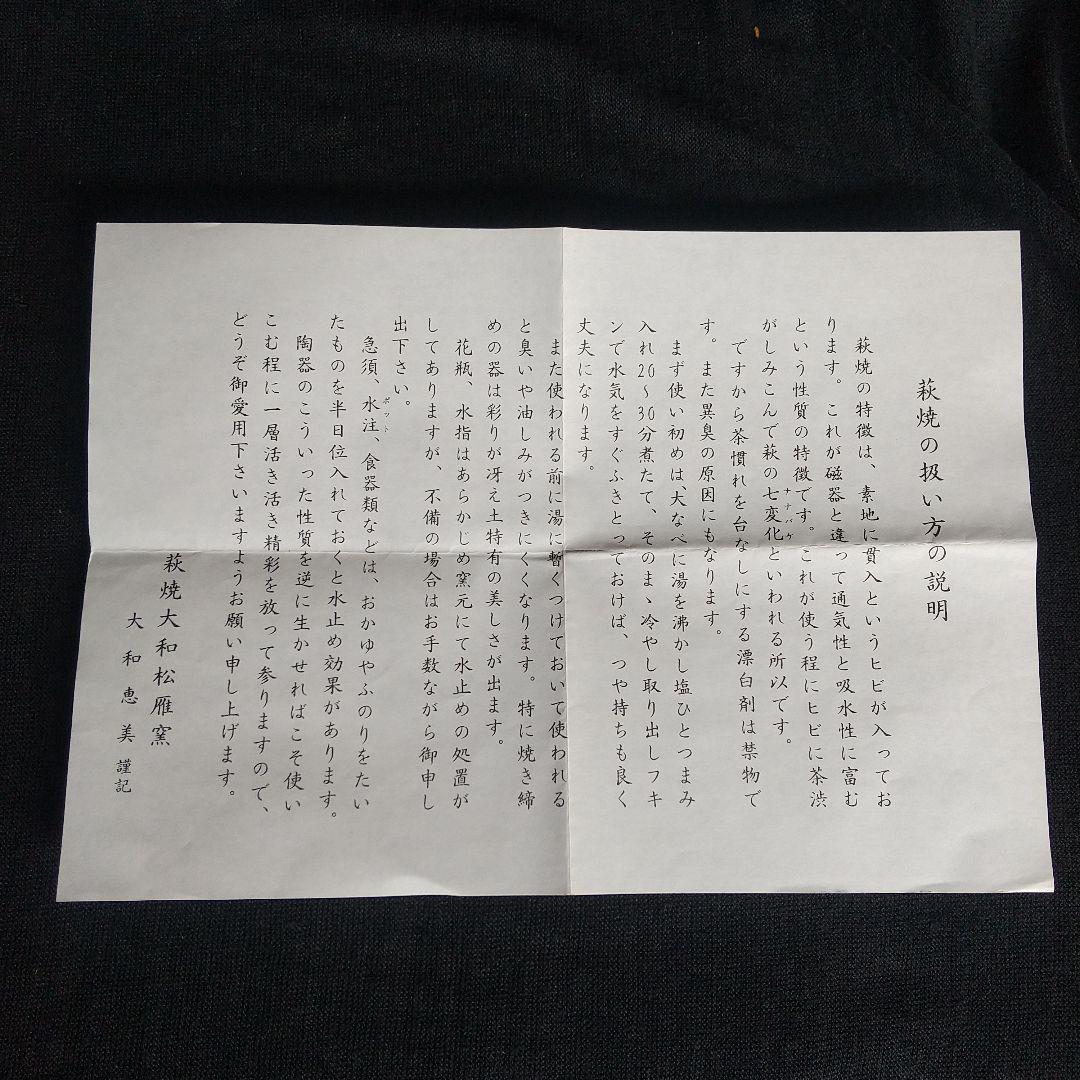 萩焼の扱い方の説明
萩焼の特徴は、素地に貫入というヒビが入ってお
ります。これが磁器と違って通気性と吸水性に富む
という性質の特徴です。これが使う程にヒビに茶渋
がしみこんで萩の七変化といわれる所以です。
ナナバケ
ですから茶慣れを台なしにする漂白剤は禁物で
す。また異臭の原因にもなります。
まず使い初めは、大なべに湯を沸かし塩ひとつまみ
入れ20~30分煮たて、そのまゝ冷やし取り出しフキ
ンで水気をすぐふきとっておけば、つや持ちも良く
丈夫になります。
また使われる前に湯に暫くつけておいて使われる
と臭いや油しみがつきにくくなります。特に焼き締
めの器は彩りが冴え土特有の美しさが出ます。
花瓶、水指はあらかじめ窯元にて水止めの処置が
してありますが、不備の場合はお手数ながら御申し
出下さい。
急須、水注、食器類などは、おかゆやふのりをたい
ポット
たものを半日位入れておくと水止め効果があります。
陶器のこういった性質を逆に生かせればこそ使い
こむ程に一層活き活き精彩を放って参りますので、
どうぞ御愛用下さいますようお願い申し上げます。
萩焼大和松雁窯
大和恵美 謹記